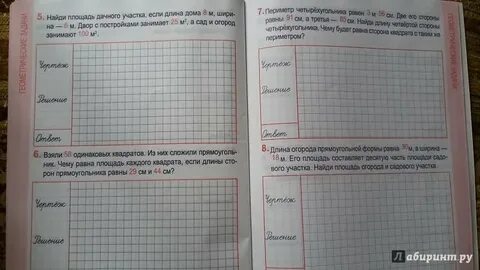 ГЕОМЕТРИЧЕСКИЕ ЗАДАЧИ
5. Найди площадь дачного участка, если длина дома 8 м, шири-
на — 6 м. Двор с постройками занимает 25 м², а сад и огород
занимают 100 м².
Чертёж
Решение
Ответ
6. Взяли 58 одинаковых квадратов. Из них сложили прямоуголь-
ник. Чему равна площадь каждого квадрата, если длины сто-
рон прямоугольника равны 29 см и 44 см?
Чертёж
Решение
7. Периметр четырёхугольника равен 3 м 56 см. Две его стороны
равны 91 см, а третья — 80 см. Найди длину четвёртой стороны
четырёхугольника. Чему будет равна сторона квадрата с таким же
периметром?
Чертёж
Решение
Ответ
8. Длина огорода прямоугольной формы равна 30 м, а ширина —
18 м. Его площадь составляет десятую часть площади садо-
вого участка. Найди площади огорода и садового участка.
Чертёж
Решение
ГЕОМЕТРИЧЕСКИЕ ЗАДАЧИ
Лабиринт.ру